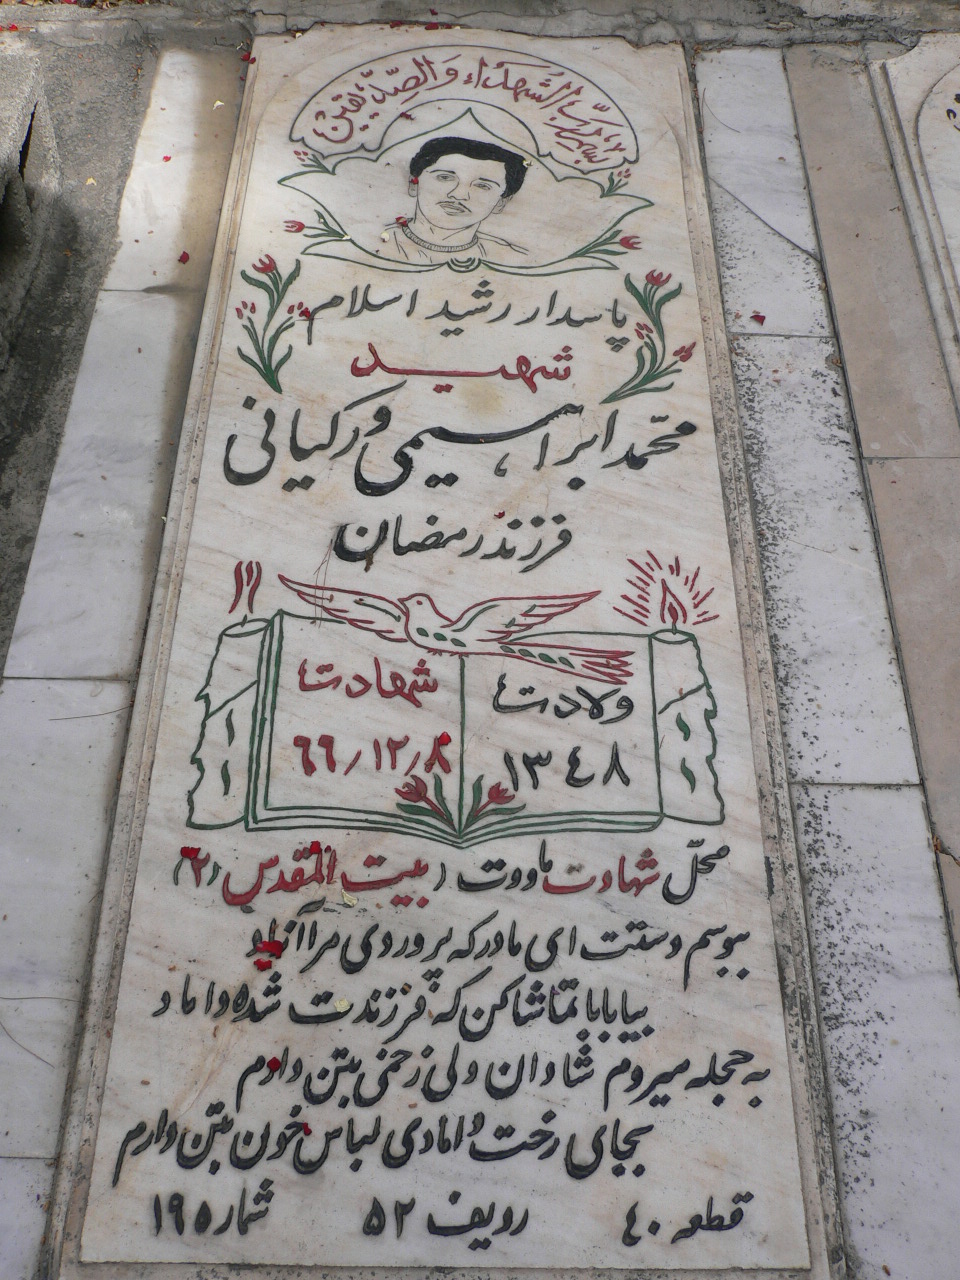 بسم رب الشهداء والصدیقین
پاسدار رشید اسلام
شهید
محمد ابراهیمی ورکیانی
فرزند رمضان
ولادت
۱۳۴۸
شهادت
۶۶/۱۲/۸
محل شهادت ماووت (بیت المقدس ۲)
ببوسم دستت ای مادر که پروردی مرا آزاد
بیا بابا تماشا کن که فرزندت شده داماد
به حجله میروم شادان ولی زخمی بتن دارم
بجای رخت دامادی لباس خون بتن دارم
قطعه ۴۰ ردیف ۵۲ شماره ۱۹۵